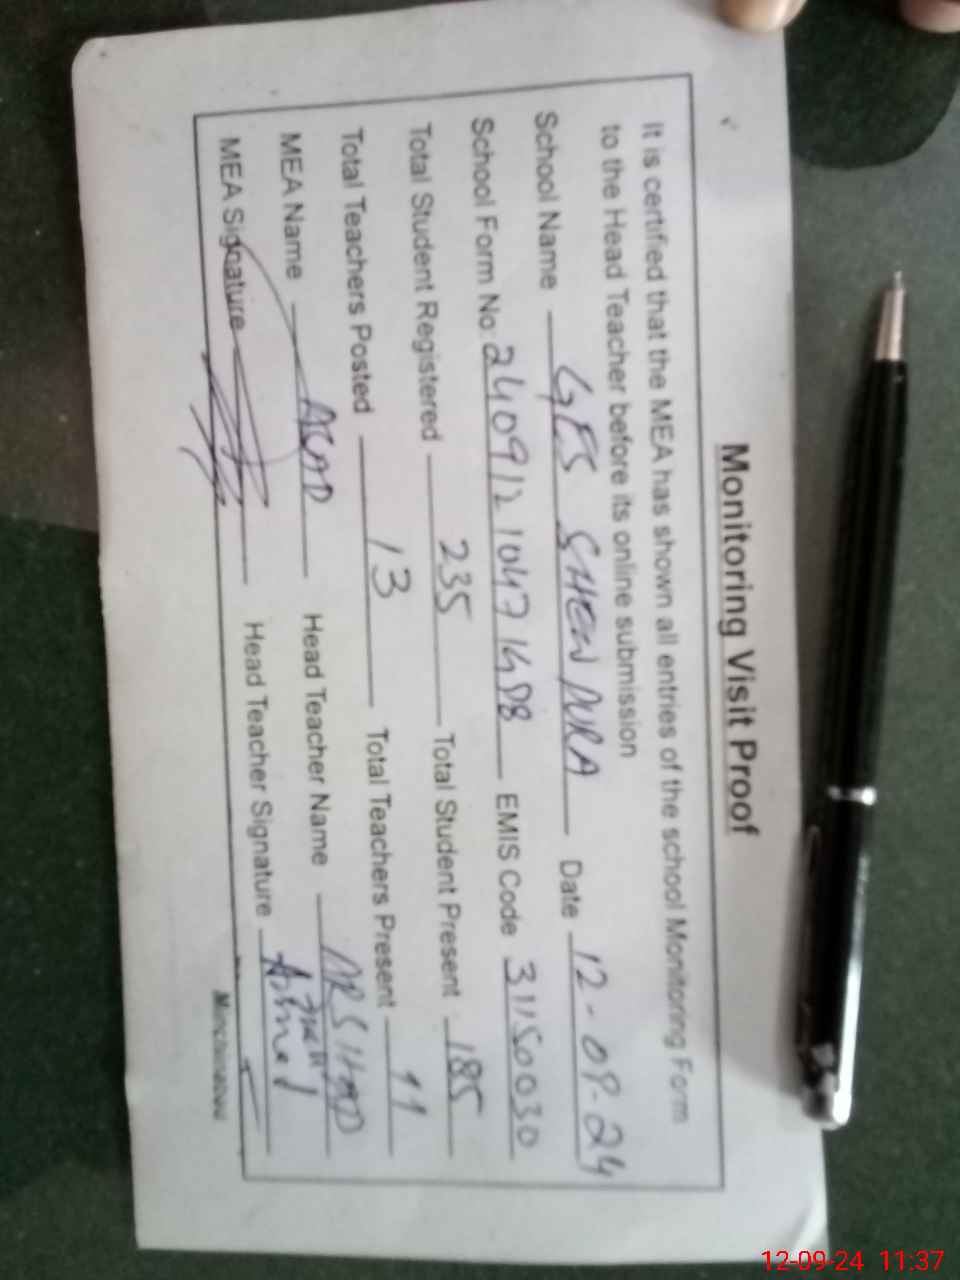 Monitoring Visit Proof
It is certified that the MEA has shown all entries of the school Monitoring Form
to the Head Teacher before its online submission
School Name GES SHEW DURA Date 12-09-24
School Form No: EMIS Code 31150030
Total Student Registered 235 Total Student Present 185
Total Teachers Posted 13 Total Teachers Present 11
MEA Name ASAD Head Teacher Name ARSHAD
MEA Signature Head Teacher Signature
12-09-24 11:37